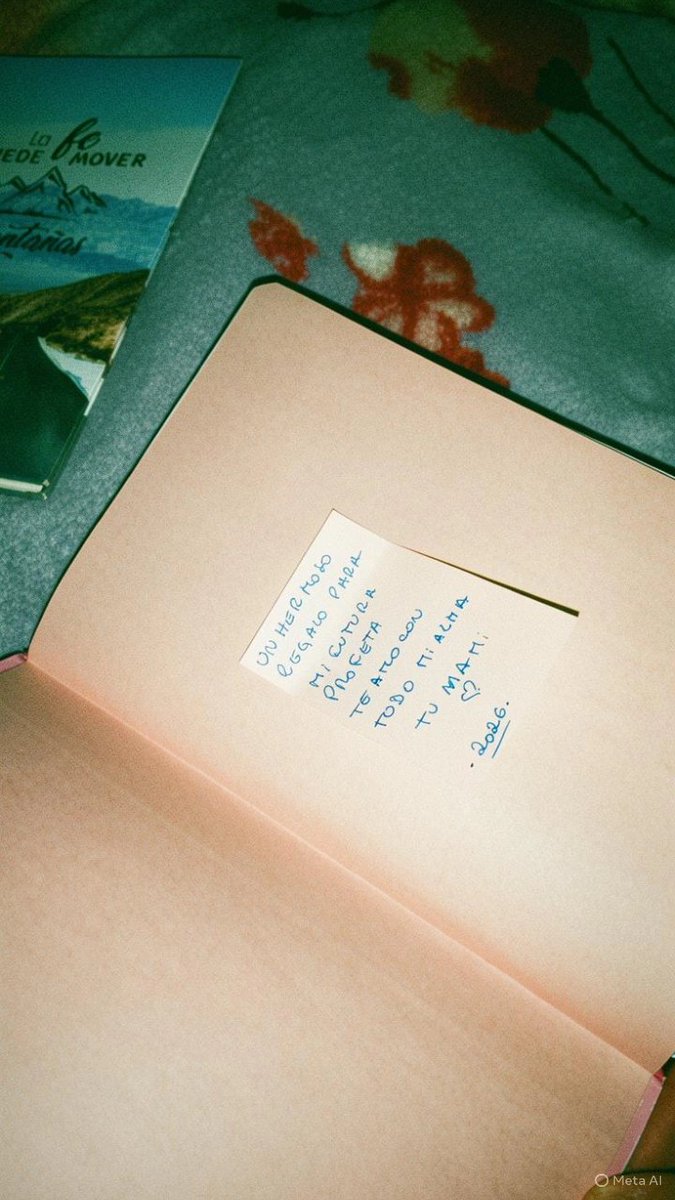 La fe
MOVER
UN HERMOSO
REGALO PARA
MI FUTURA
PROFETA
TE AMO CON
TODO MI ALMA
TU MAMi
♡
. 2026.
Meta AI